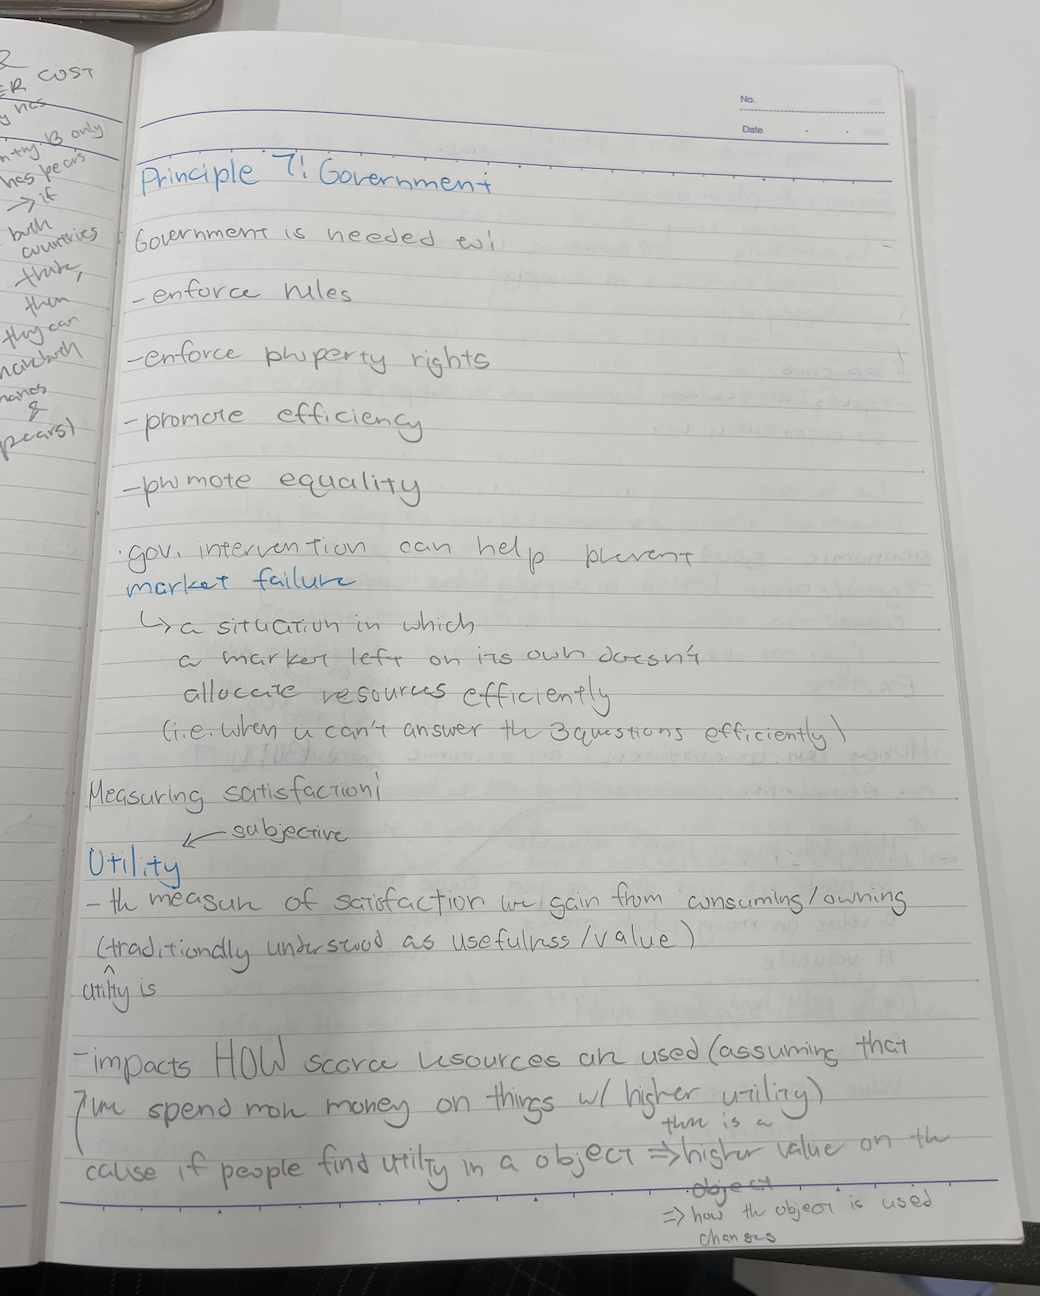 R
ER COST
y has
ntry B only
has pears
→ if
both
countries
trade,
then
they can
have both
&
pears)
No.
Date
Principle 7: Government
Government is needed to:
- enforce rules
- enforce property rights
- promote efficiency
- promote equality
· gov. intervention can help prevent
market failure
↳ a situation in which
a market left on its own doesn't
allocate resources efficiently
(i.e. when u can't answer the 3 questions efficiently)
Measuring satisfaction:
← subjective
Utility
- the measure of satisfaction we gain from consuming/owning
(traditionally understood as usefulness/value)
^
utility is
- impacts HOW scarce resources are used (assuming that
we spend more money on things w/ higher utility)
there is a
cause if people find utility in a object ⇒ higher value on the
object
⇒ how the object is used
changes